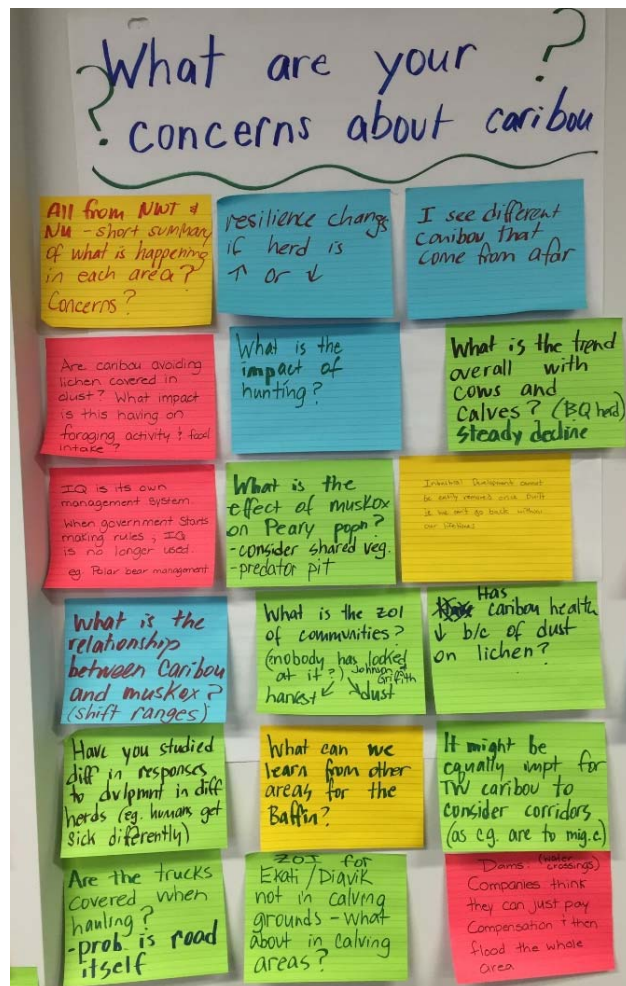 ? What are your ?
concerns about caribou
All from NWT &
NU - short summary
of what is happening
in each area?
Concerns?
resilience change
if herd is
↑ or ↓
I see different
caribou that
come from afar
Are caribou avoiding
lichen covered in
dust? What impact
is this having on
foraging activity & food
intake?
What is the
impact of
hunting?
What is the trend
overall with
cows and
calves? (BQ herd)
steady decline
IQ is its own
management system.
When government starts
making rules, IQ
is no longer used.
eg. Polar bear management
What is the
effect of muskox
on Peary popn?
-consider shared veg.
-predator pit
Industrial Development cannot
be easily removed once built
it we can't go back within
our lifetimes
What is the
relationship
between Caribou
and muskox?
(shift ranges)
What is the ZOI
of communities?
(nobody has looked
at it?) Johnson & Griffith
harvest ↙ ↘ dust
Has
caribou health
↓ b/c of dust
on lichen?
Have you studied
diff in responses
to dvlpmnt in diff
herds (eg. humans get
sick differently)
What can we
learn from other
areas for the
Baffin?
It might be
equally impt for
TW caribou to
consider corridors
(as cg. are to mig.c)
Are the trucks
covered when
hauling?
-prob. is road
itself
ZOI for
Ekati/Diavik
not in calving
grounds - What
about in calving
areas?
Dams: (water crossings)
Companies think
they can just pay
Compensation & then
flood the whole
area